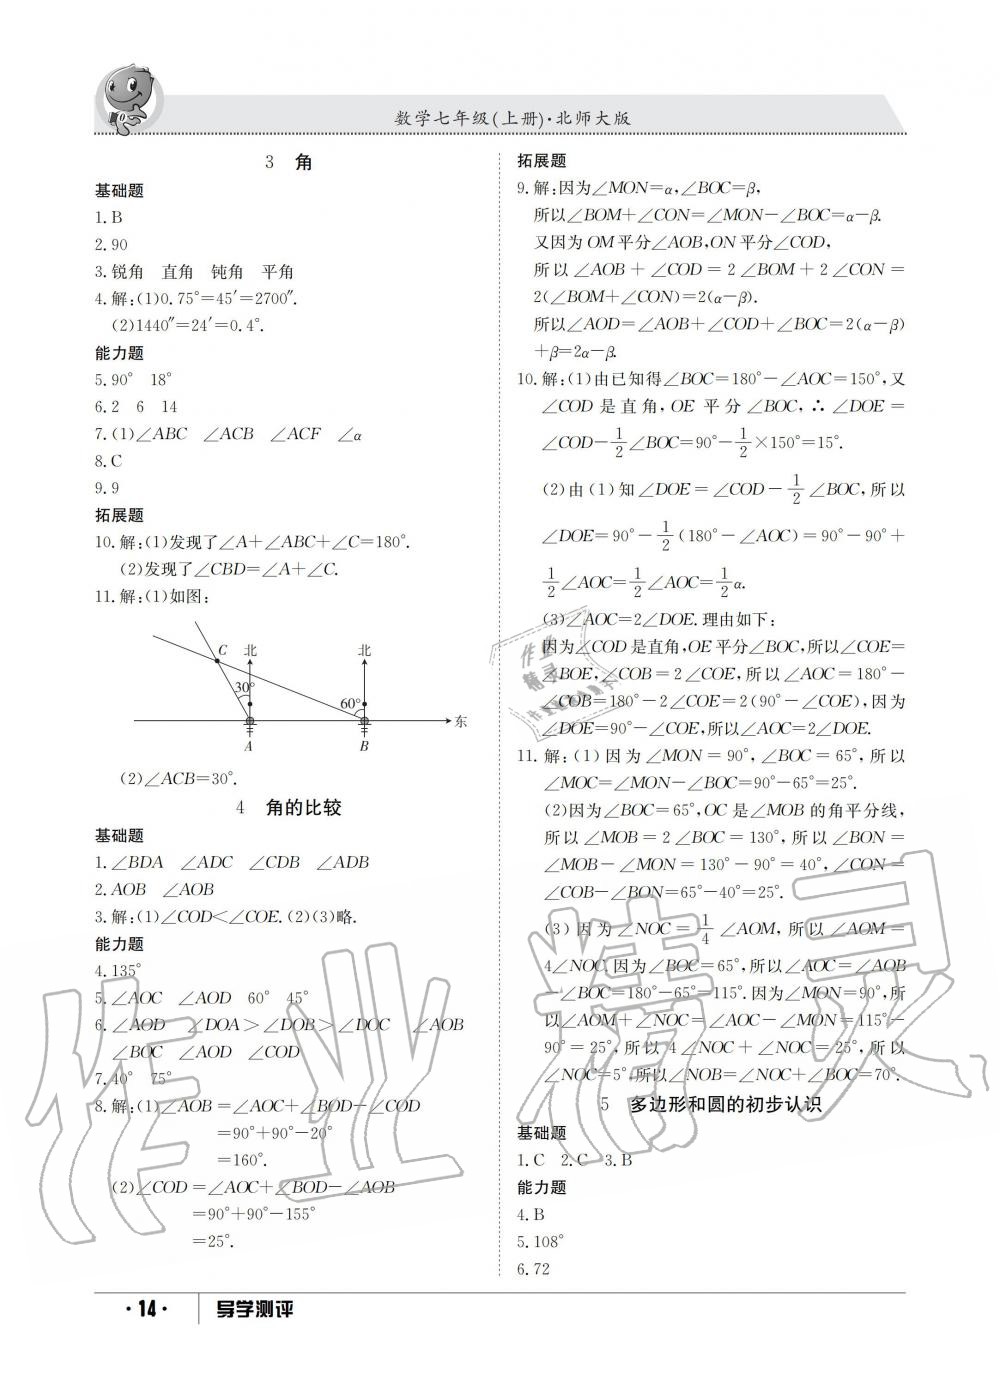 数学七年级(上册)·北师大版
3 角
基础题
1.B
2.90
3.锐角 直角 钝角 平角
4.解:(1)0.75°=45′=2700″.
(2)1440″=24′=0.4°.
能力题
5.90° 18°
6.2 6 14
7.(1)∠ABC ∠ACB ∠ACF ∠α
8.C
9.9
拓展题
10.解:(1)发现了∠A+∠ABC+∠C=180°.
(2)发现了∠CBD=∠A+∠C.
11.解:(1)如图:
C 北 北
30° 60°
东
A B
(2)∠ACB=30°.
4 角的比较
基础题
1.∠BDA ∠ADC ∠CDB ∠ADB
2.AOB ∠AOB
3.解:(1)∠COD<∠COE.(2)(3)略.
能力题
4.135°
5.∠AOC ∠AOD 60° 45°
6.∠AOD ∠DOA>∠DOB>∠DOC ∠AOB
∠BOC ∠AOD ∠COD
7.40° 75°
8.解:(1)∠AOB=∠AOC+∠BOD-∠COD
=90°+90°-20°
=160°.
(2)∠COD=∠AOC+∠BOD-∠AOB
=90°+90°-155°
=25°.
拓展题
9.解:因为∠MON=α,∠BOC=β,
所以∠BOM+∠CON=∠MON-∠BOC=α-β.
又因为OM平分∠AOB,ON平分∠COD,
所以∠AOB+∠COD=2∠BOM+2∠CON=
2(∠BOM+∠CON)=2(α-β).
所以∠AOD=∠AOB+∠COD+∠BOC=2(α-β)
+β=2α-β.
10.解:(1)由已知得∠BOC=180°-∠AOC=150°,又
∠COD是直角,OE平分∠BOC,∴∠DOE=
∠COD-1/2∠BOC=90°-1/2×150°=15°.
(2)由(1)知∠DOE=∠COD-1/2∠BOC,所以
∠DOE=90°-1/2(180°-∠AOC)=90°-90°+
1/2∠AOC=1/2∠AOC=1/2α.
(3)∠AOC=2∠DOE.理由如下:
因为∠COD是直角,OE平分∠BOC,所以∠COE=
∠BOE,∠COB=2∠COE,所以∠AOC=180°-
∠COB=180°-2∠COE=2(90°-∠COE),因为
∠DOE=90°-∠COE,所以∠AOC=2∠DOE.
11.解:(1)因为∠MON=90°,∠BOC=65°,所以
∠MOC=∠MON-∠BOC=90°-65°=25°.
(2)因为∠BOC=65°,OC是∠MOB的角平分线,
所以∠MOB=2∠BOC=130°,所以∠BON=
∠MOB-∠MON=130°-90°=40°,∠CON=
∠COB-∠BON=65°-40°=25°.
(3)因为∠NOC=1/4∠AOM,所以∠AOM=
4∠NOC.因为∠BOC=65°,所以∠AOC=∠AOB
-∠BOC=180°-65°=115°.因为∠MON=90°,所
以∠AOM+∠NOC=∠AOC-∠MON=115°-
90°=25°,所以4∠NOC+∠NOC=25°,所以
∠NOC=5°.所以∠NOB=∠NOC+∠BOC=70°.
5 多边形和圆的初步认识
基础题
1.C 2.C 3.B
能力题
4.B
5.108°
6.72
·14· 导学测评
作业精灵